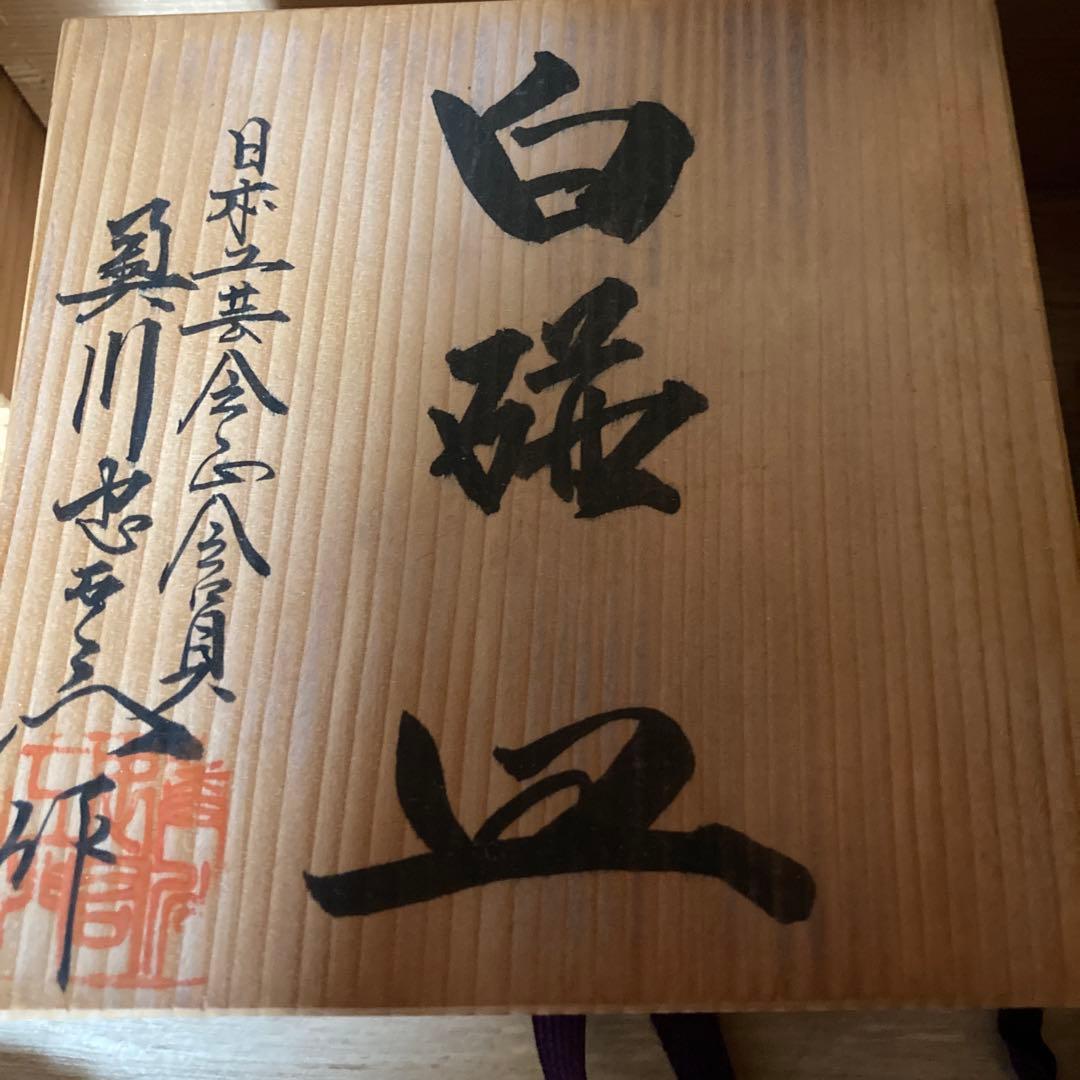 白磁皿
日本工芸会正会員
奥川忠右衛門作